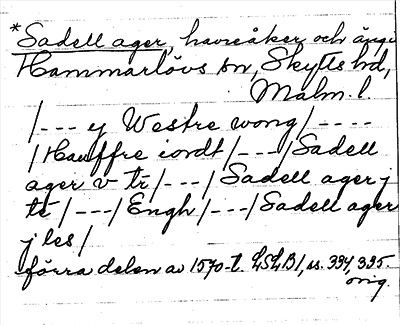 *Sadell ager, havreåker och änge
Hammarlövs sn, Skytts hd,
Malm. l.
/--- y Westre wong/----
/Hauffre iordt/---/Sadell
ager v tr/---/Sadell ager j
te/---/Engh/---/Sadell ager
j les/
förra delen av 1570-t. LSLB1, ss. 394, 395.
orig.